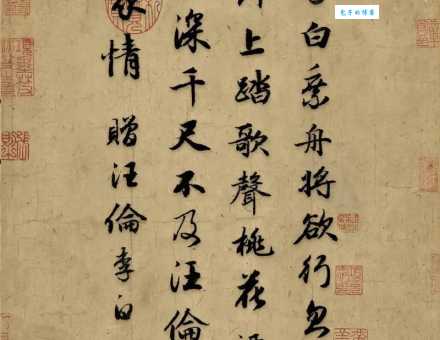 白乘舟將欲行忽
上踏歌聲桃花
深千尺不及汪倫
情 贈汪倫 李白